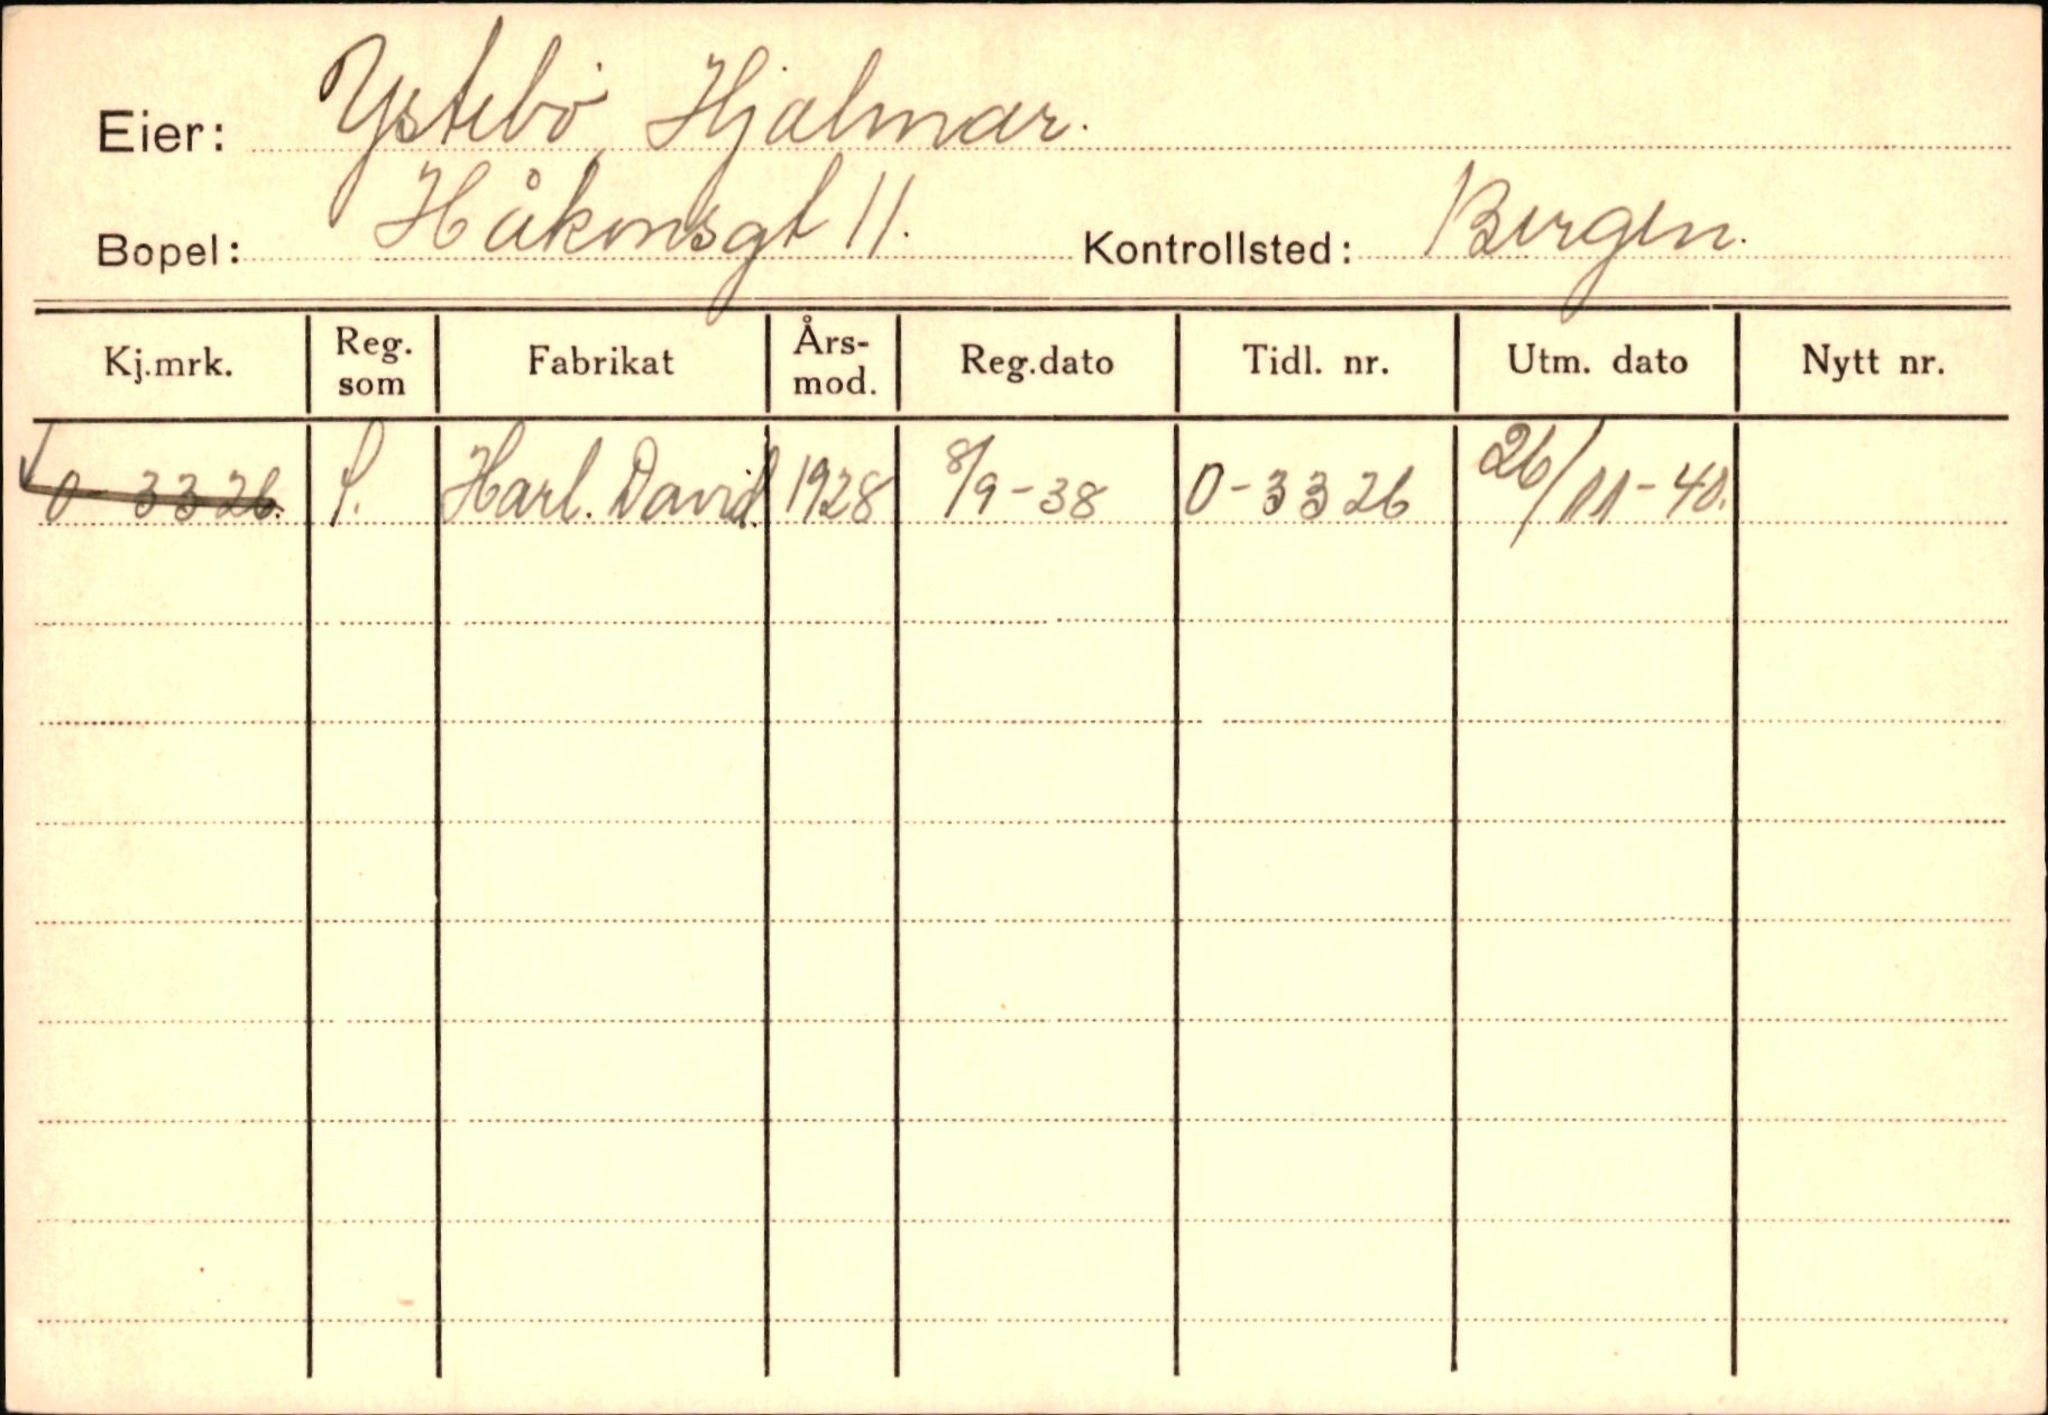 Eier: Ystebö Hjalmar.
Bopel: Håkonsgt 11. Kontrollsted: Bergen.
Kj.mrk. Reg. som Fabrikat Års-mod. Reg.dato Tidl. nr. Utm. dato Nytt nr.
O-3326. P. Harl. David. 1928 8/9-38 O-3326 26/11-40.